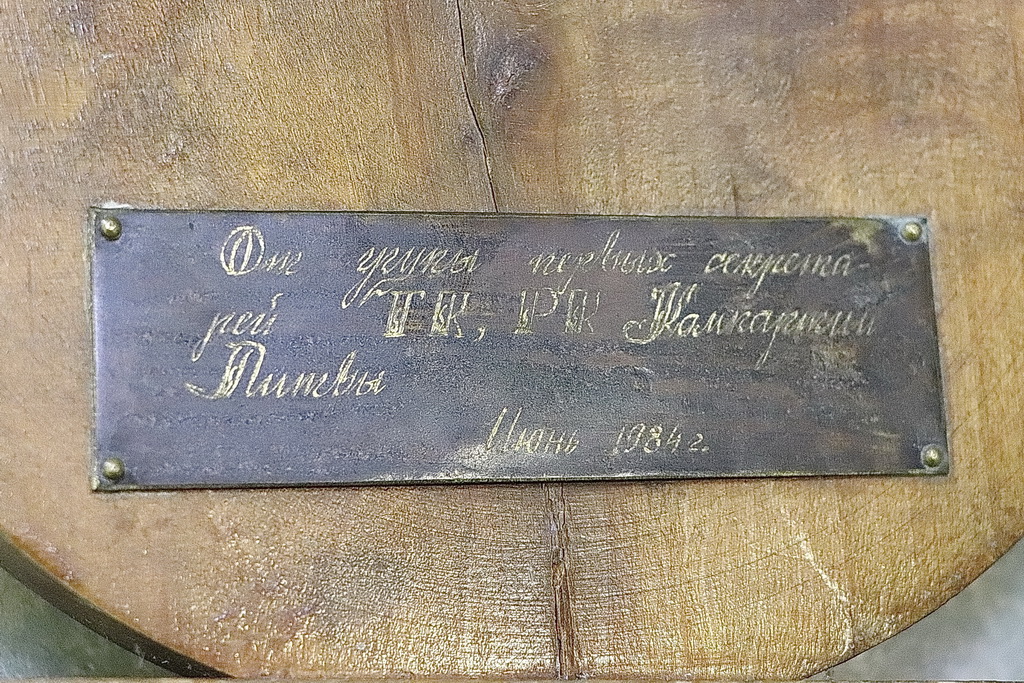 От группы первых секрета-
рей ГК, РК Компартии
Литвы
Июнь 1984 г.